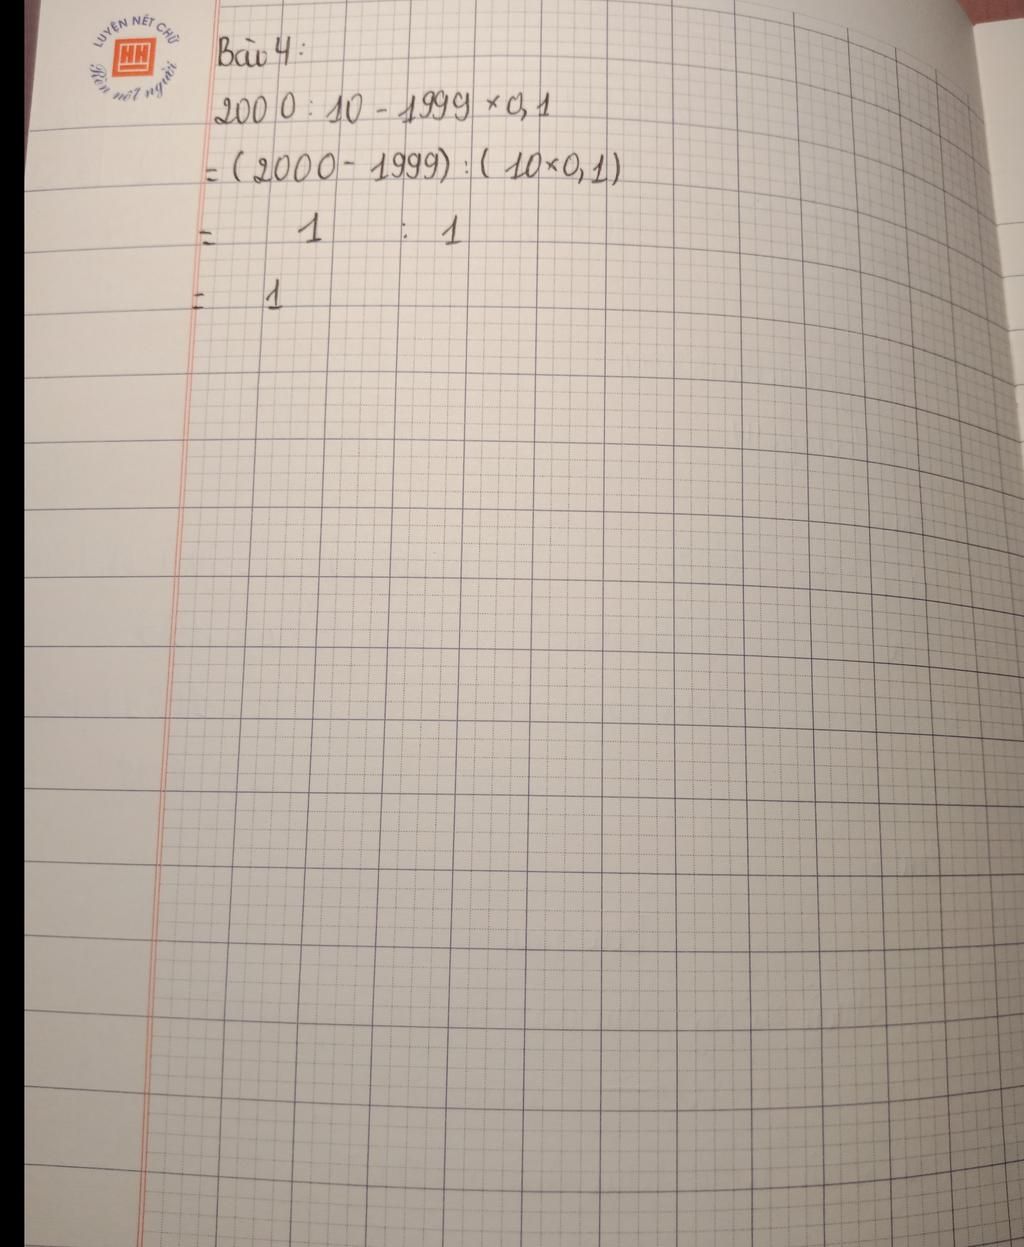 LUYỆN NÉT CHỮ
HH
Rèn nết người
Bài 4:
2000 : 10 - 1999 × 0,1
= (2000 - 1999) : ( 10 × 0,1)
= 1 : 1
= 1